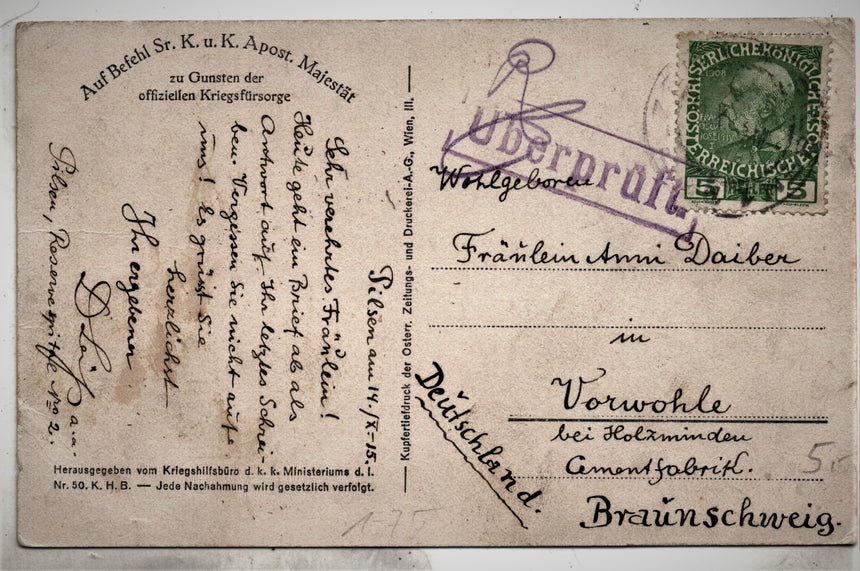 Auf Befehl Sr. K. u. K. Apost. Majestät
zu Gunsten der
offiziellen Kriegsfürsorge
Pilsen am 14./X-15.
Sehr verehrtes Fräulein!
Heute geht ein Brief ab als
Antwort auf Ihr letztes Schrei-
ben. Vergessen Sie nicht auf
uns! Es grüsst Sie
herzlichst
Ihr ergebener
Pilsen, Reservespital No 2.
Herausgegeben vom Kriegshilfsbüro d. k. k. Ministeriums d. I.
Nr. 50. K. H. B. — Jede Nachahmung wird gesetzlich verfolgt.
— Kupfertiefdruck der Österr. Zeitungs- und Druckerei-A.-G., Wien, III. —
Überprüft.
1908
5 5
Wohlgeboren
Fräulein Anni Daiber
in
Vorwohle
bei Holzminden
Cementfabrik.
Braunschweig.
Deutschland.
175
5